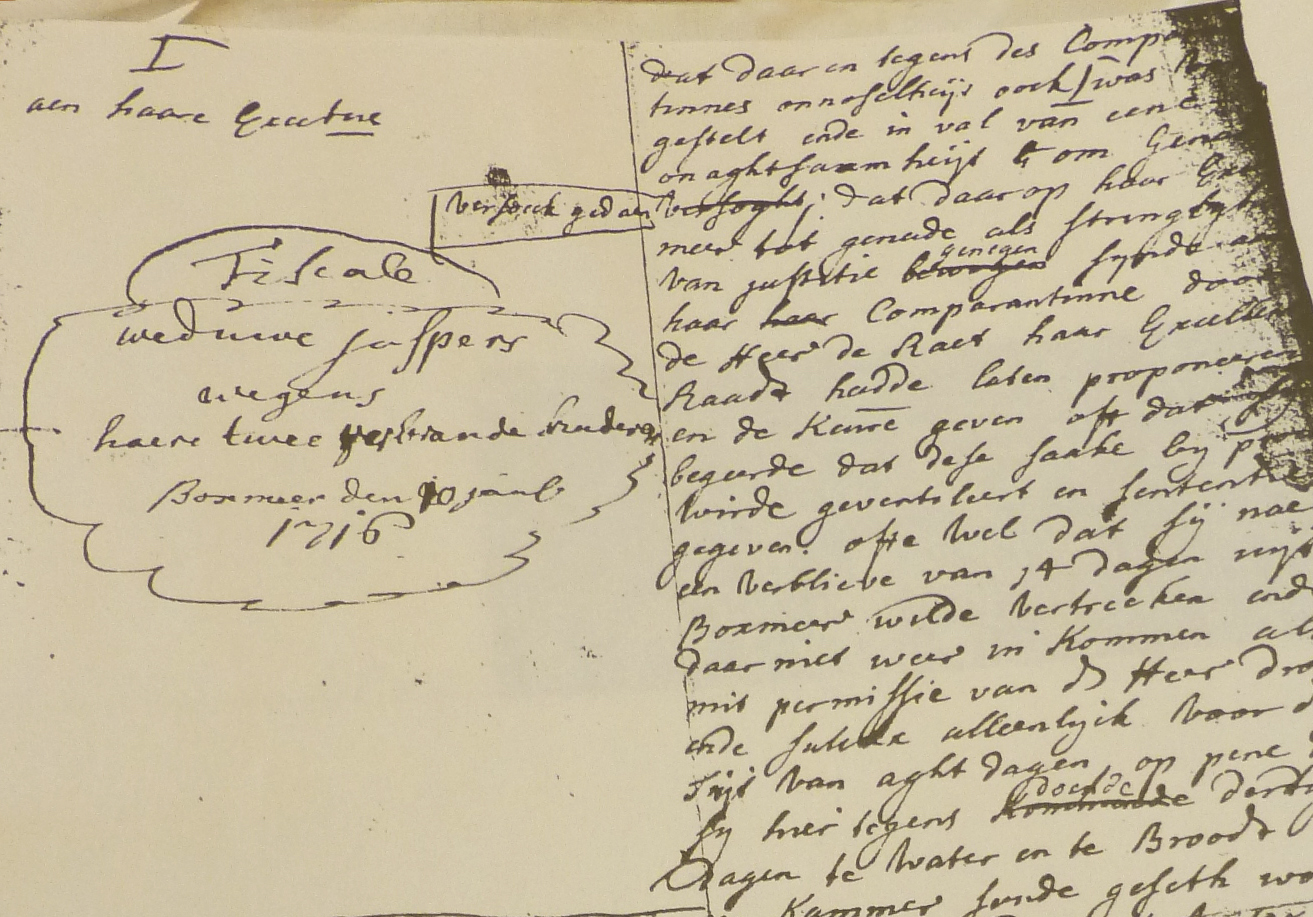 I
aen haare Excetne
versoeck gedaen
Fiscale
weduwe Jaspers
wegens
haere twee verbrande kinderen
Boxmeer den 10 janl
1716
dat daar en tegens des Comp
tinnes onnoselheijt oock I was
gestelt ende in val van eene
onaghtsaamheijt om Gena
versoght; dat daar op haar Ex
meer tot genade als strengigh
van justitie bewogen genegen synde
haar haar Comparantinne door
de Heer de Raet haar Excellen
Raadt hadde laten proponeeren
en de Keure geven oft dat sy
begeerde dat dese saake by pr
wirde geventileert en sententie
gegeven. ofte wel dat sij nae
een verblieve van 14 dagen uyt
Boxmeer wilde vertrecken ende
daar niet weer in kommen als
mit permissie van d Heer Dro
ende sulckx alleenlijck voor d
Tijt van aght dagen op pene
sy hier tegens kommende doende dert
Dagen te water en te Broodt
Kammer sunde geseth wo